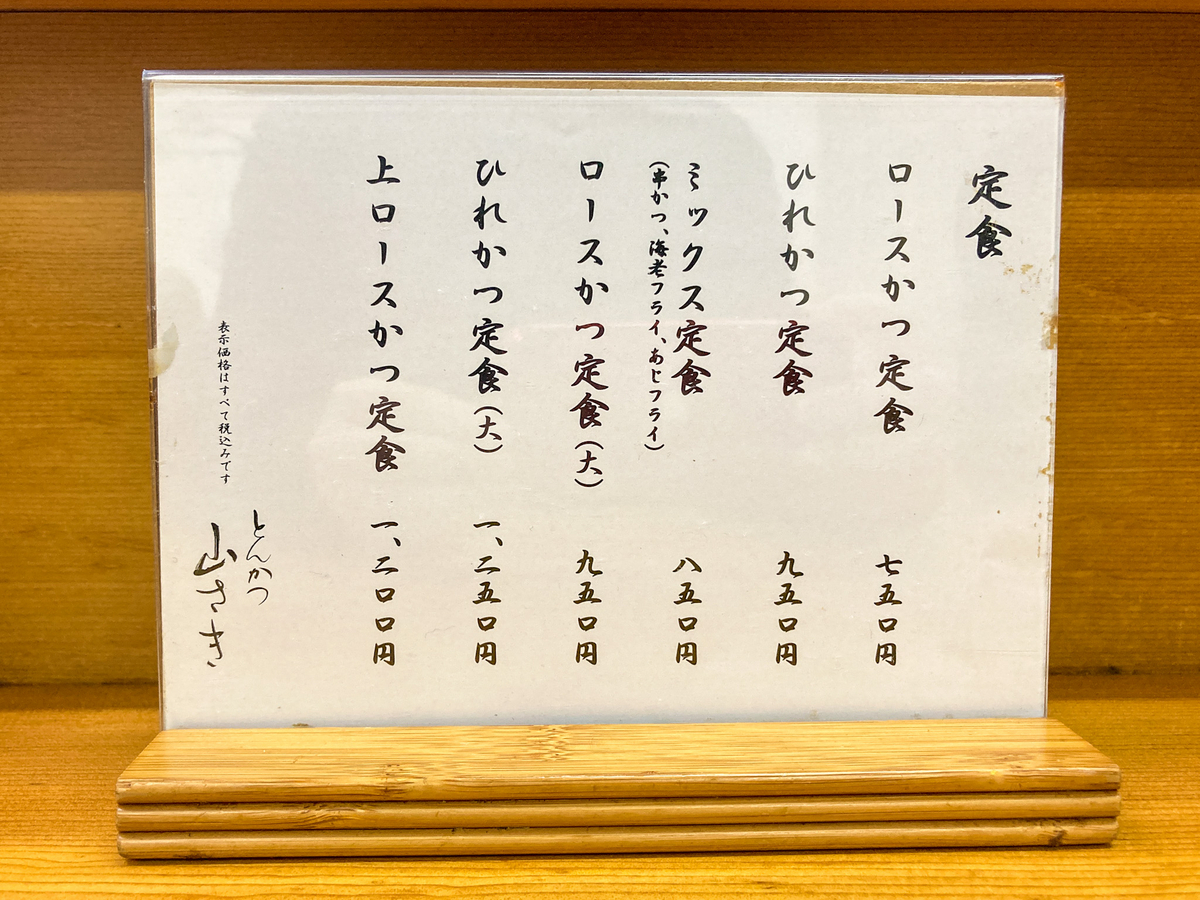 定食
ロースかつ定食 七五〇円
ひれかつ定食 九五〇円
ミックス定食 八五〇円
(串かつ、海老フライ、あじフライ)
ロースかつ定食(大) 九五〇円
ひれかつ定食(大) 一、二五〇円
上ロースかつ定食 一、二〇〇円
表示価格はすべて税込みです
とんかつ
山さき